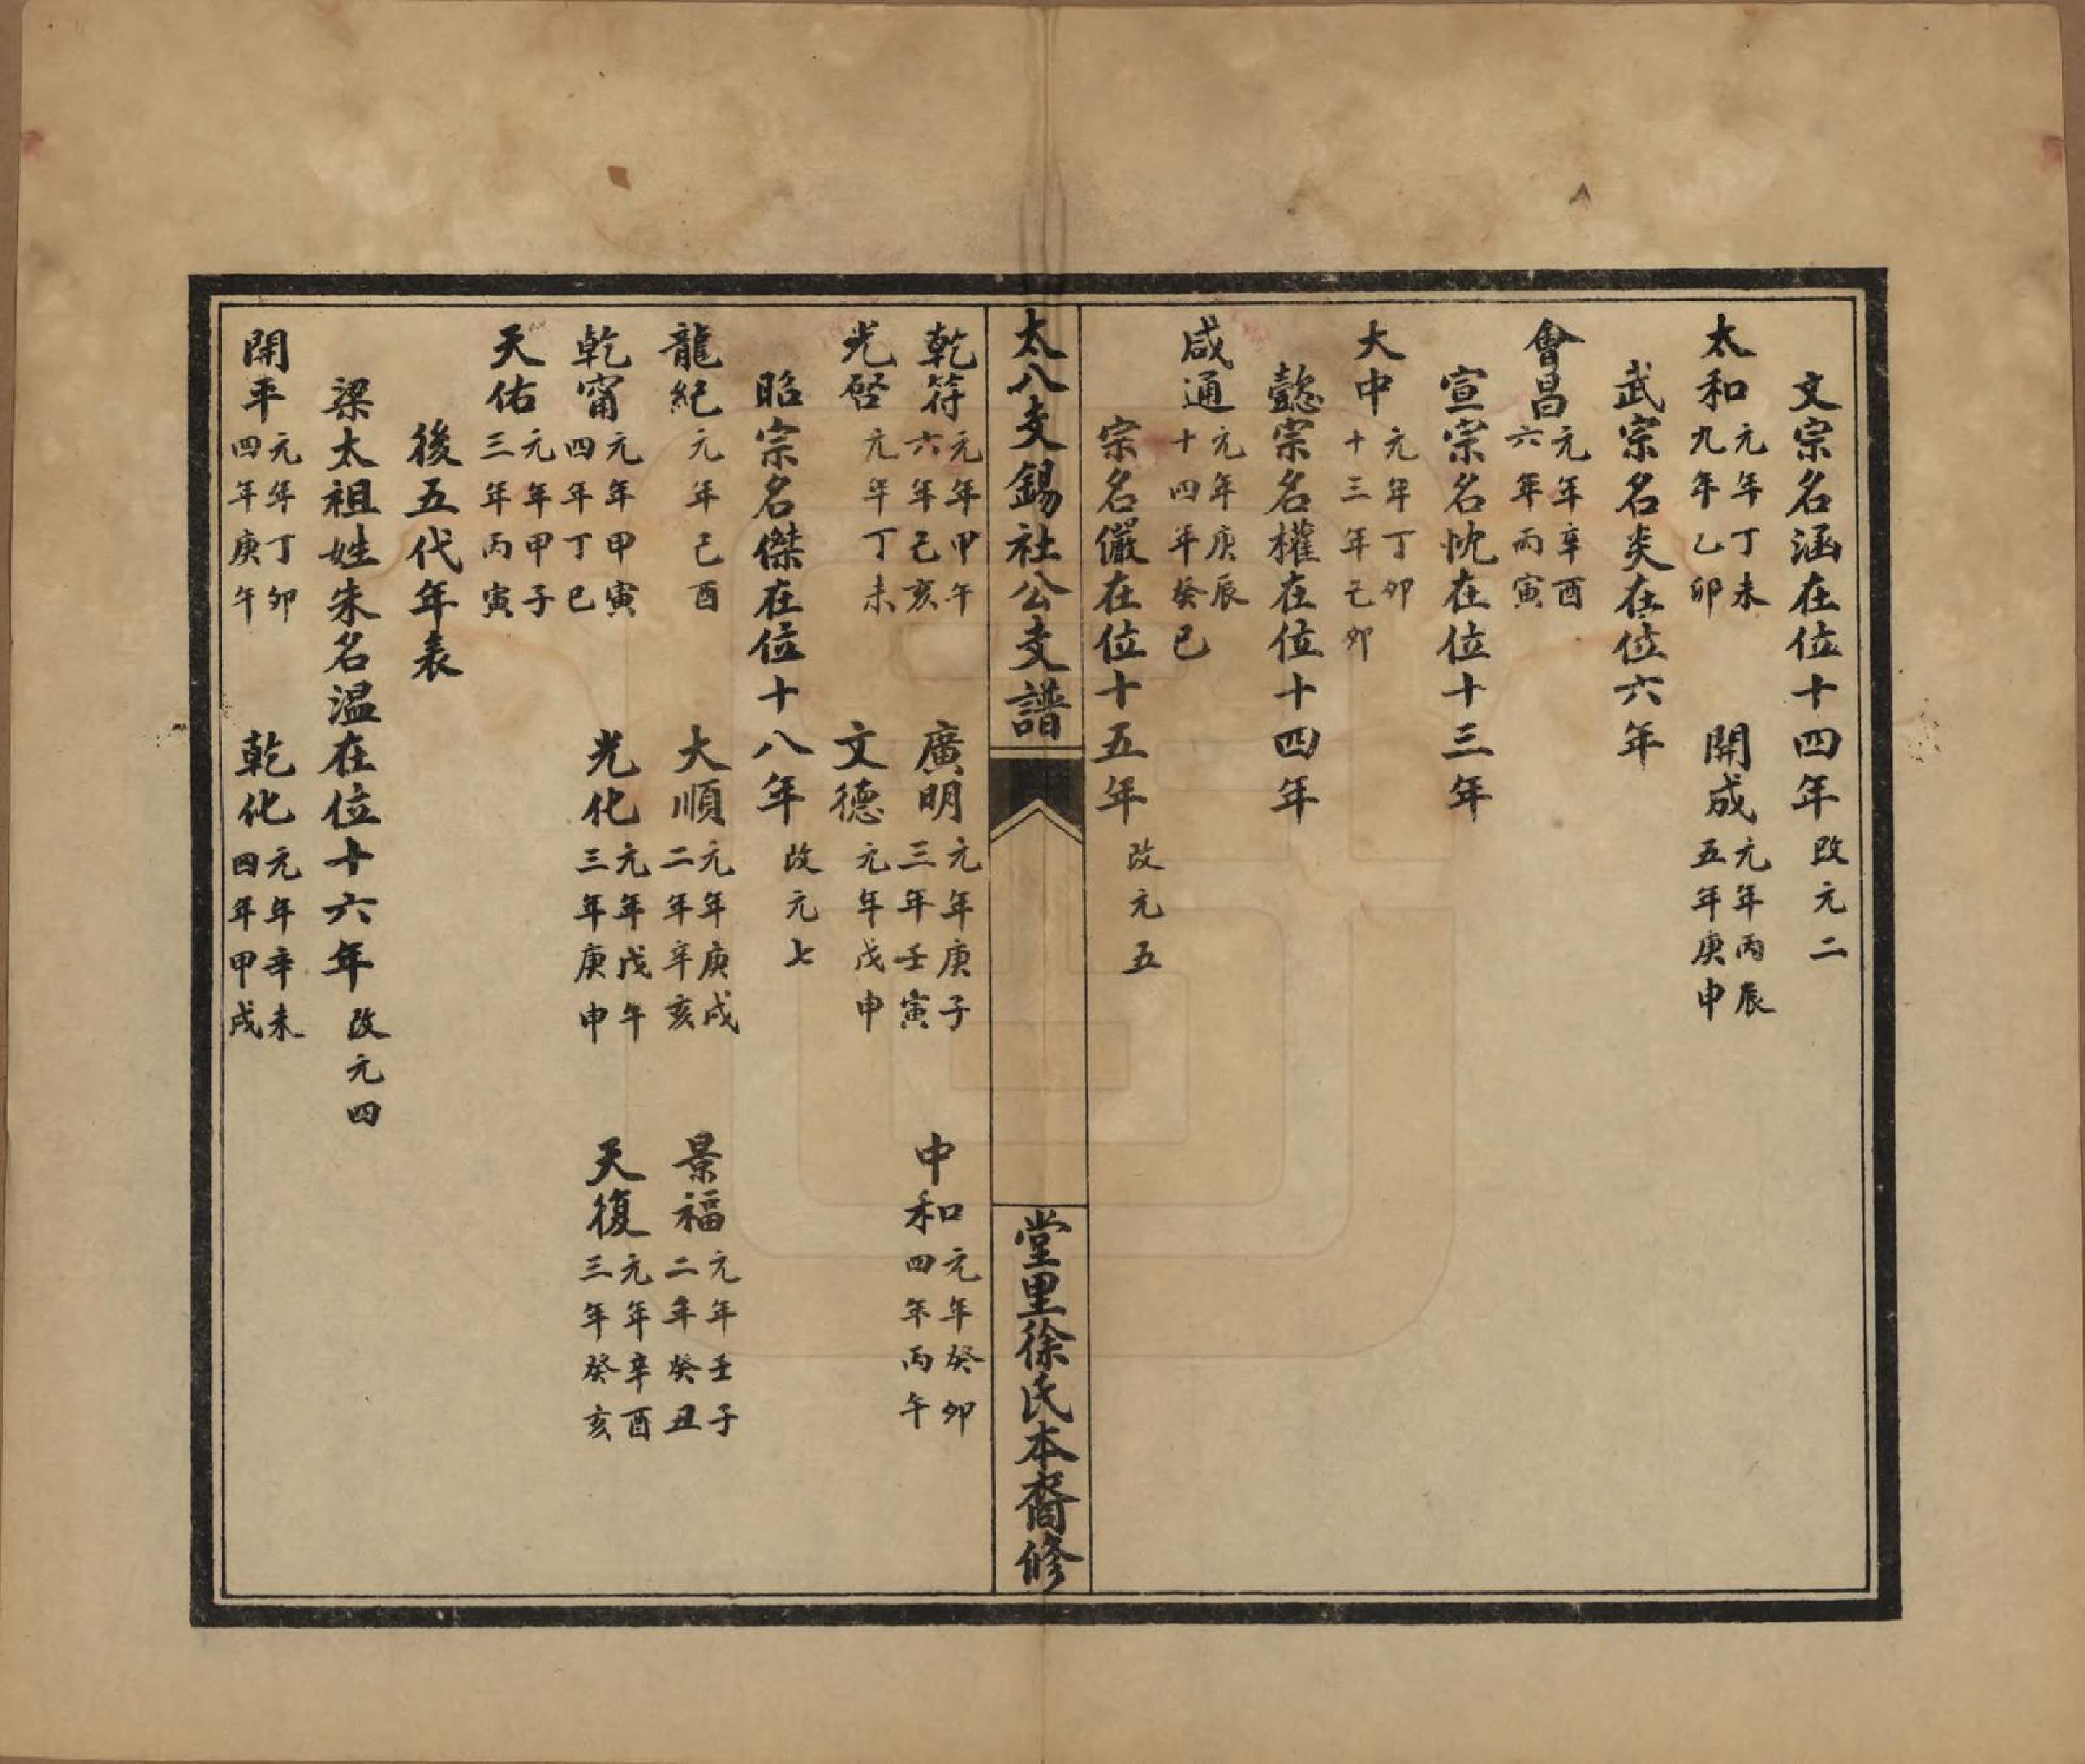 文宗名涵在位十四年改元二
太和元年丁未九年乙卯　開成元年丙辰五年庚申
武宗名炎在位六年
會昌元年辛酉六年丙寅
宣宗名忱在位十三年
大中元年丁卯十三年己卯
懿宗名權在位十四年
咸通元年庚辰十四年癸巳
宗名儼在位十五年改元五
太八支錫社公支譜　堂里徐氏本裔修
乾符元年甲午六年己亥　廣明元年庚子三年壬寅　中和元年癸卯四年丙午
光啓元年丁未　文德元年戊申
昭宗名傑在位十八年改元七
龍紀元年己酉　大順元年庚戌二年辛亥　景福元年壬子二年癸丑
乾甯元年甲寅四年丁巳　光化元年戊午三年庚申　天復元年辛酉三年癸亥
天佑元年甲子三年丙寅
後五代年表
梁太祖姓朱名溫在位十六年改元四
開平元年丁卯四年庚午　乾化元年辛未四年甲戌